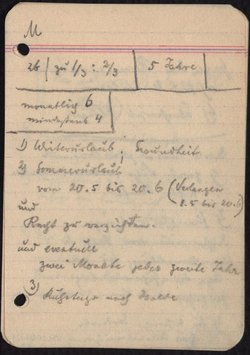 M
26 / zu 1/3 : 2/3 | 5 Jahre
monatlich 6
mindestens 4
1) Winterurlaub, Gesundheit
2) Sommerurlaub
vom 20.5 bis 20.6 (Verlangen
8.5 bis 20.6)
und
Recht zu verzichten.
und eventuell
zwei Monate jedes zweite Jahr
3) nach